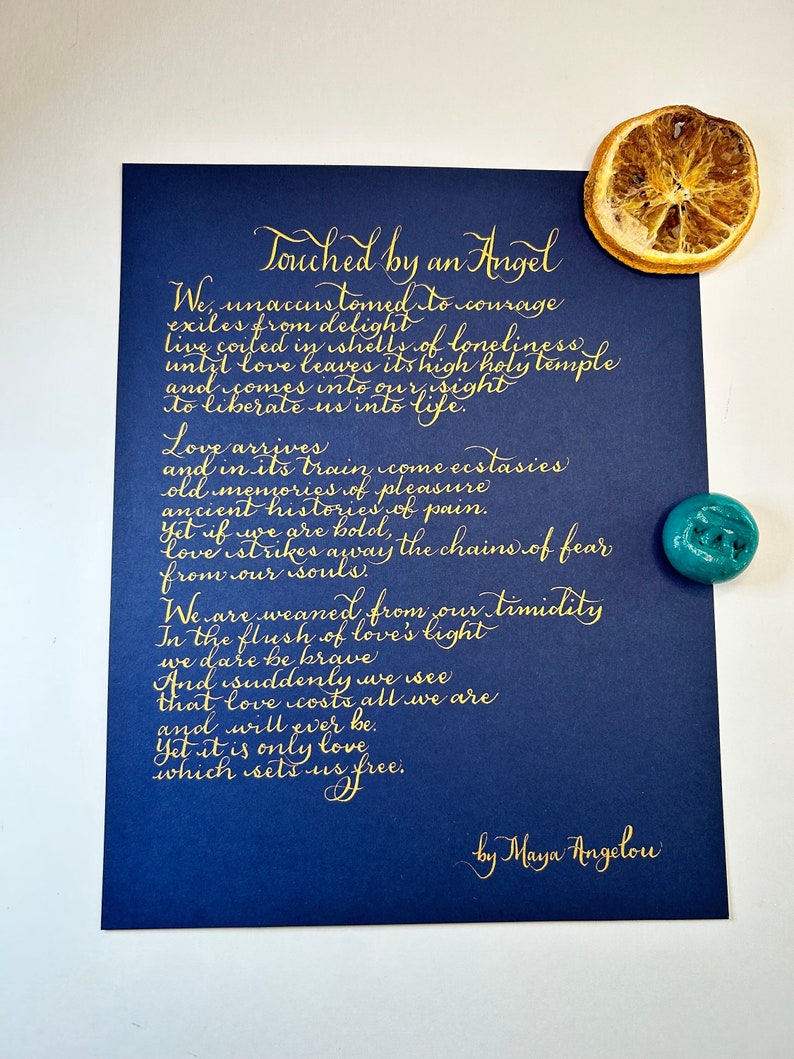 Touched by an Angel
We, unaccustomed to courage
exiles from delight
live coiled in shells of loneliness
until love leaves its high holy temple
and comes into our sight
to liberate us into life.
Love arrives
and in its train come ecstasies
old memories of pleasure
ancient histories of pain.
Yet if we are bold,
love strikes away the chains of fear
from our souls.
We are weaned from our timidity
In the flush of love's light
we dare be brave
And suddenly we see
that love costs all we are
and will ever be.
Yet it is only love
which sets us free.
by Maya Angelou